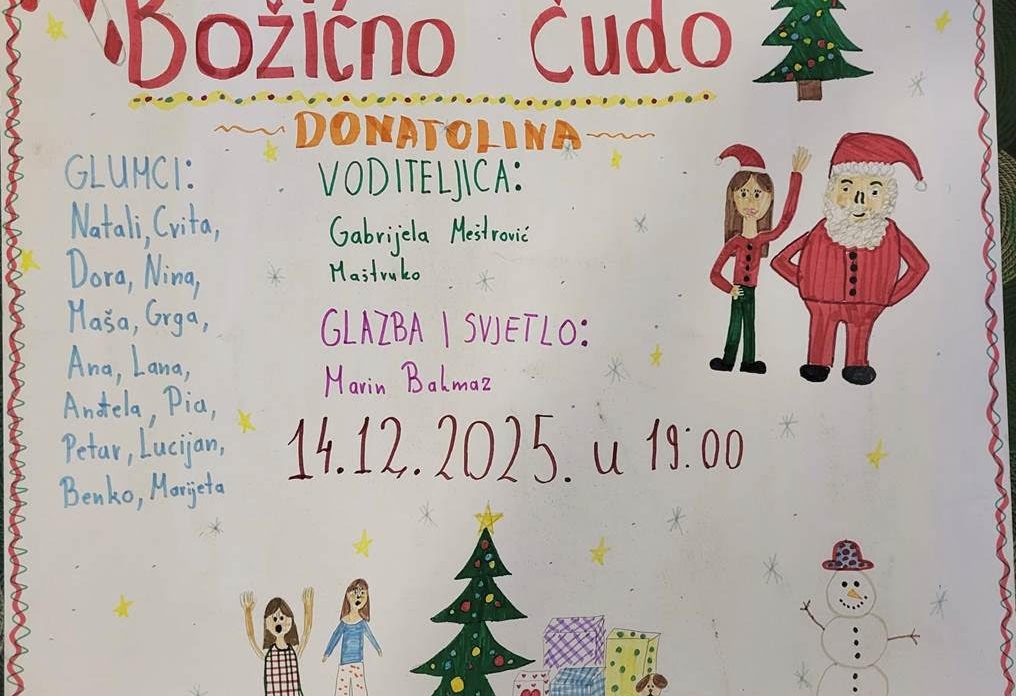 Božićno čudo
DONATOLINA
GLUMCI:
Natali, Cvita,
Dora, Nina,
Maša, Grga,
Ana, Lana,
Anđela, Pia,
Petar, Lucijan,
Benko, Marijeta
VODITELJICA:
Gabrijela Meštrović
Maštruko
GLAZBA I SVJETLO:
Marin Bakmaz
14.12.2025. u 19:00